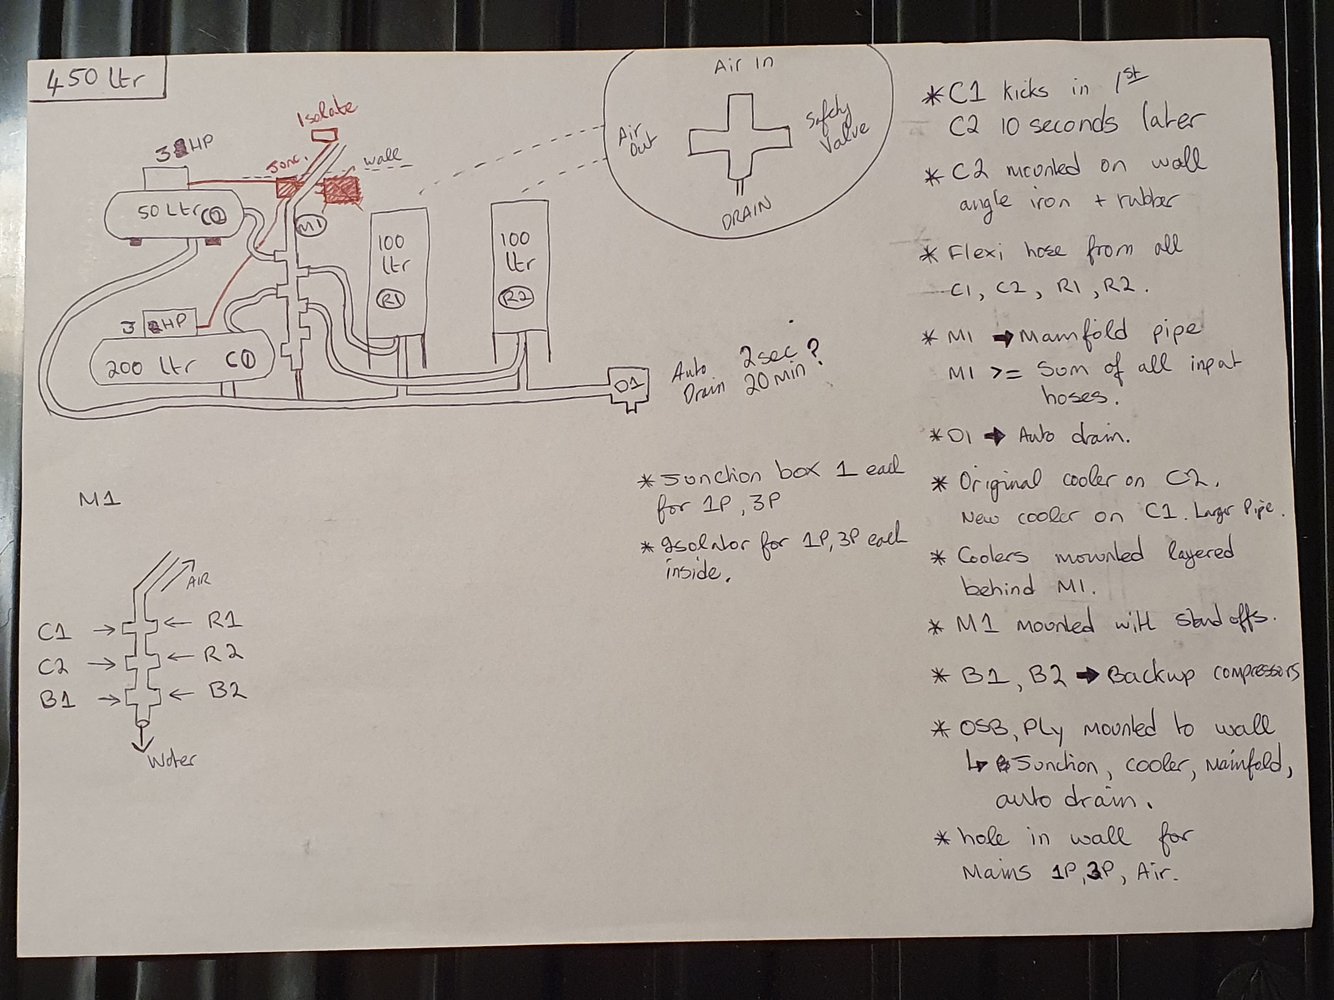 450 ltr
Isolate
3 HP
Junc.
wall
50 Ltr C2
M1
100
ltr
R1
100
ltr
R2
3 HP
200 ltr C1
D1
Auto 2sec ?
Drain 20min
Air In
Air
Out
Safety
Valve
DRAIN
M1
AIR
C1 R1
C2 R2
B1 B2
Water
* Junction box 1 each
for 1P, 3P
* Isolator for 1P, 3P each
inside.
* C1 kicks in 1st
C2 10 seconds later
* C2 mounted on wall
angle iron + rubber
* Flexi hose from all
C1, C2, R1, R2.
* M1 → Manifold pipe
M1 >= Sum of all input
hoses.
* D1 → Auto drain.
* Original cooler on C2.
New cooler on C1. Larger Pipe.
* Coolers mounted layered
behind M1.
* M1 mounted with stand offs.
* B1, B2 → Backup compressors
* OSB, Ply mounted to wall
↳ Junction, cooler, Manifold,
auto drain.
* hole in wall for
Mains 1P, 3P, Air.